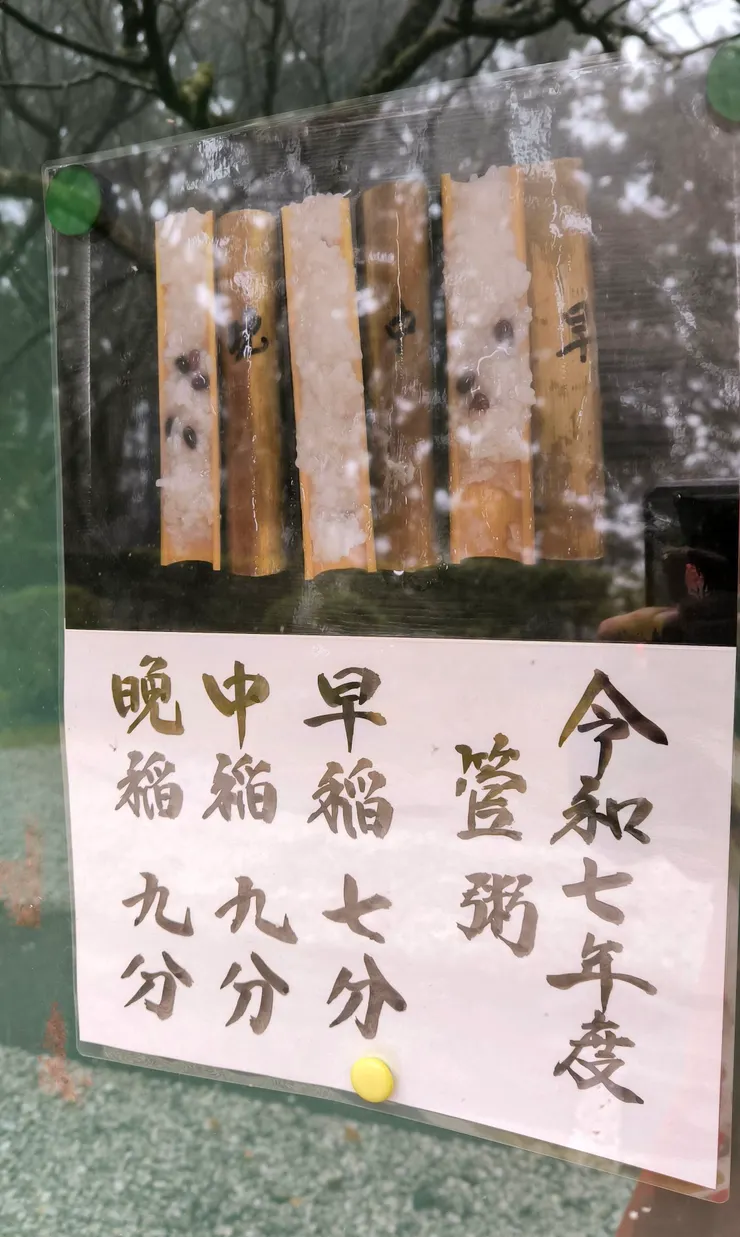 早
中
晩
令和七年度
管粥
早稲 七分
中稲 九分
晩稲 九分